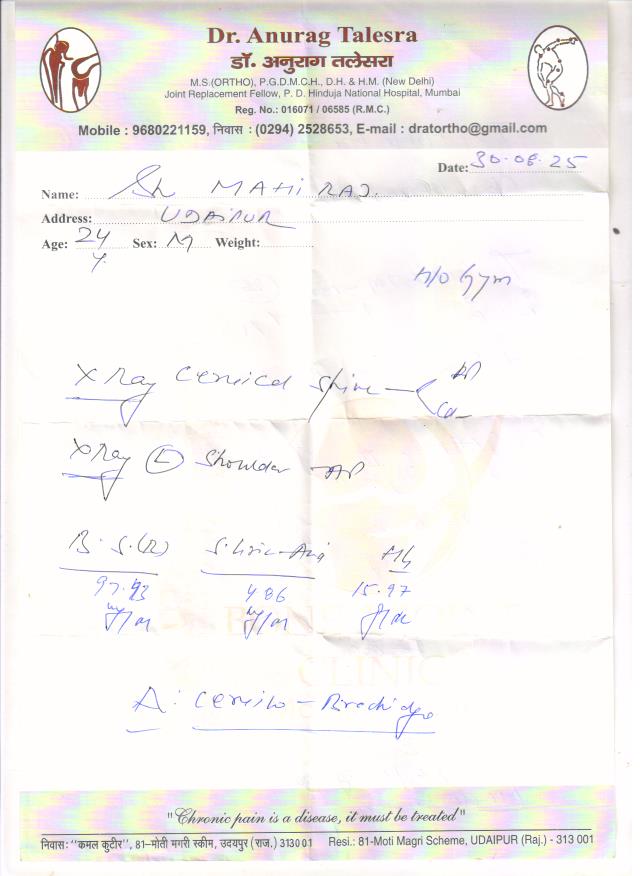 Dr. Anurag Talesra
डॉ. अनुराग तलेसरा
M.S.(ORTHO), P.G.D.M.C.H., D.H. & H.M. (New Delhi)
Joint Replacement Fellow, P. D. Hinduja National Hospital, Mumbai
Reg. No.: 016071 / 06585 (R.M.C.)
Mobile : 9680221159, निवास : (0294) 2528653, E-mail : dratortho@gmail.com
Date: 30.08.25
Name: Sh MAHI RAJ.
Address: UDAIPUR
Age: 24 Y. Sex: M Weight:
H/O Gym
X Ray Cervical Spine AP
X Ray (L) Shoulder AP
B.S.(R) S. Uric Acid Hb
97.93 4.86 15.97
mg/dl mg/dl g/dl
Δ: Cervico - Brachialgia
CLINIC
"Chronic pain is a disease, it must be treated"
निवास: "कमल कुटीर", 81-मोती मगरी स्कीम, उदयपुर (राज.) 313001 Resi.: 81-Moti Magri Scheme, UDAIPUR (Raj.) - 313 001